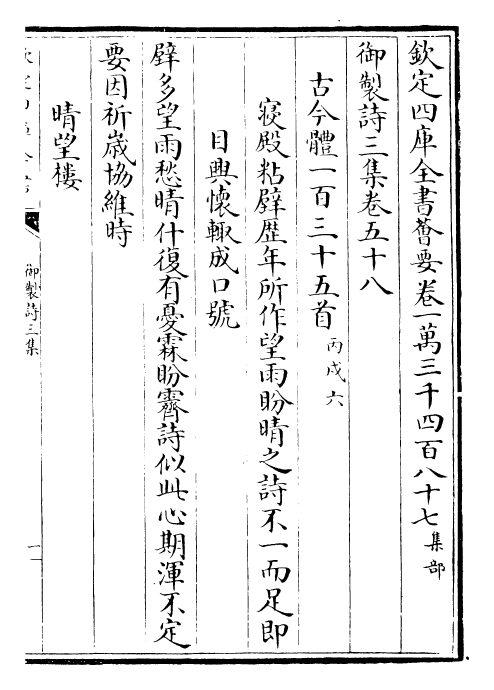 欽定四庫全書薈要卷一萬三千四百八十七集部
御製詩三集卷五十八
古今體一百三十五首丙戌六
寢殿粘壁歴年所作望雨盼晴之詩不一而足即
目興懷輙成口號
壁多望雨愁晴什復有憂霖盼霽詩似此心期渾不定
要因祈嵗協維時
晴望樓
御製詩三集
一